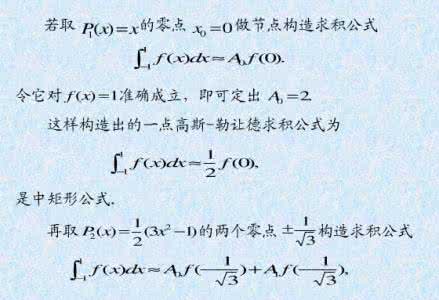 若取 P₁(x)=x的零点 x₀=0做节点构造求积公式
∫₋₁¹ f(x)dx≈A₀f(0).
令它对f(x)=1准确成立，即可定出 A₀=2.
这样构造出的一点高斯-勒让德求积公式为
∫₋₁¹ f(x)dx≈1/2 f(0),
是中矩形公式.
再取P₂(x)=1/2(3x²−1)的两个零点 ±1/√3 构造求积公式
∫₋₁¹ f(x)dx≈A₀f(−1/√3)+A₁f(1/√3),